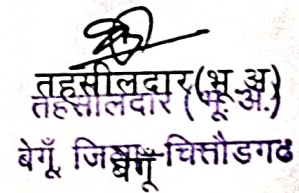 तहसीलदार (भू.अ.)
तहसीलदार (भू.अ.)
बेगूँ, जिला-चित्तौडगढ
बेगूँ